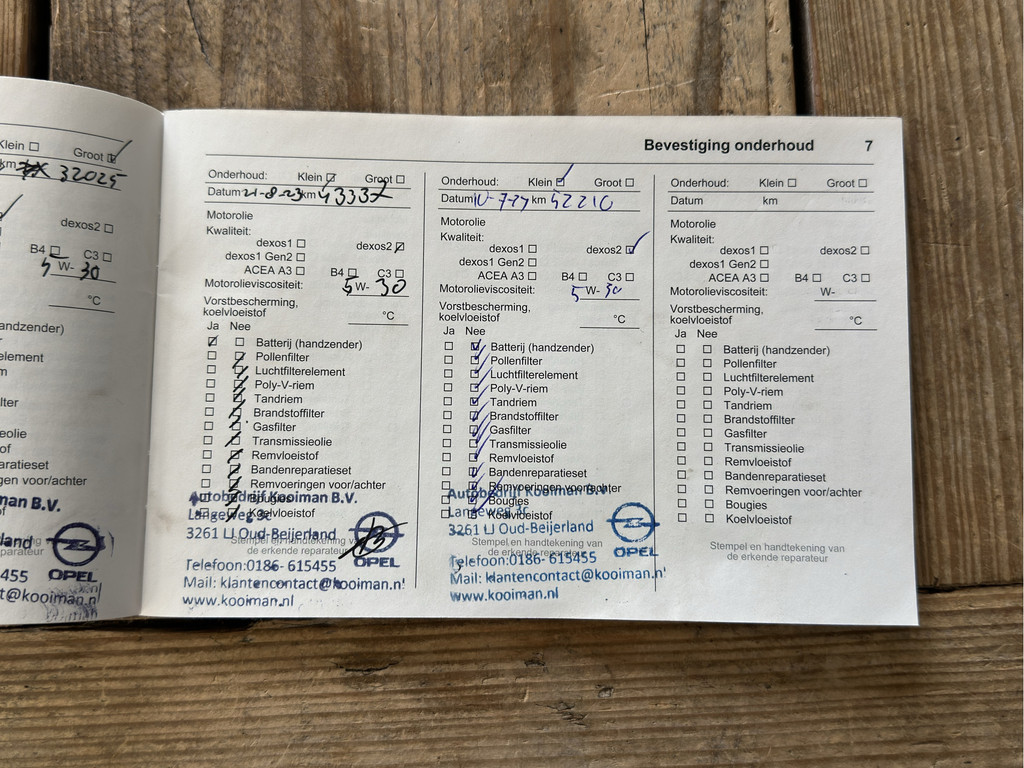 Klein ☐ Groot ☑
km 32025
dexos2 ☐
B4 ☐ C3 ☐
5 W- 30
°C
andzender)
element
m
lter
eolie
of
aratieset
gen voor/achter
man B.V.
land
parateur
455
OPEL
t@kooiman.nl
Bevestiging onderhoud 7
Onderhoud: Klein ☑ Groot ☐
Datum 21-8-23 km 43337
Motorolie
Kwaliteit:
dexos1 ☐ dexos2 ☑
dexos1 Gen2 ☐
ACEA A3 ☐ B4 ☐ C3 ☐
Motorolieviscositeit: 5 W- 30
Vorstbescherming,
koelvloeistof °C
Ja Nee
☑ ☐ Batterij (handzender)
☐ ☑ Pollenfilter
☐ ☑ Luchtfilterelement
☐ ☑ Poly-V-riem
☐ ☑ Tandriem
☐ ☑ Brandstoffilter
☐ ☑ Gasfilter
☐ ☑ Transmissieolie
☐ ☑ Remvloeistof
☐ ☑ Bandenreparatieset
☐ ☑ Remvoeringen voor/achter
☐ ☑ Bougies
☐ ☑ Koelvloeistof
Autobedrijf Kooiman B.V.
Langeweg 3c
3261 LJ Oud-Beijerland
Stempel en handtekening van
de erkende reparateur
OPEL
Telefoon:0186- 615455
Mail: klantencontact@kooiman.nl
www.kooiman.nl
Onderhoud: Klein ☑ Groot ☐
Datum 10-7-24 km 52210
Motorolie
Kwaliteit:
dexos1 ☐ dexos2 ☑
dexos1 Gen2 ☐
ACEA A3 ☐ B4 ☐ C3 ☐
Motorolieviscositeit: 5 W- 30
Vorstbescherming,
koelvloeistof °C
Ja Nee
☐ ☑ Batterij (handzender)
☐ ☑ Pollenfilter
☐ ☑ Luchtfilterelement
☐ ☑ Poly-V-riem
☐ ☑ Tandriem
☐ ☑ Brandstoffilter
☐ ☑ Gasfilter
☐ ☑ Transmissieolie
☐ ☑ Remvloeistof
☐ ☑ Bandenreparatieset
☐ ☑ Remvoeringen voor/achter
☐ ☑ Bougies
☐ ☑ Koelvloeistof
Autobedrijf Kooiman B.V.
Langeweg 3c
3261 LJ Oud-Beijerland
Stempel en handtekening van
de erkende reparateur
OPEL
Telefoon:0186- 615455
Mail: klantencontact@kooiman.nl
www.kooiman.nl
Onderhoud: Klein ☐ Groot ☐
Datum km
Motorolie
Kwaliteit:
dexos1 ☐ dexos2 ☐
dexos1 Gen2 ☐
ACEA A3 ☐ B4 ☐ C3 ☐
Motorolieviscositeit: W-
Vorstbescherming,
koelvloeistof °C
Ja Nee
☐ ☐ Batterij (handzender)
☐ ☐ Pollenfilter
☐ ☐ Luchtfilterelement
☐ ☐ Poly-V-riem
☐ ☐ Tandriem
☐ ☐ Brandstoffilter
☐ ☐ Gasfilter
☐ ☐ Transmissieolie
☐ ☐ Remvloeistof
☐ ☐ Bandenreparatieset
☐ ☐ Remvoeringen voor/achter
☐ ☐ Bougies
☐ ☐ Koelvloeistof
Stempel en handtekening van
de erkende reparateur